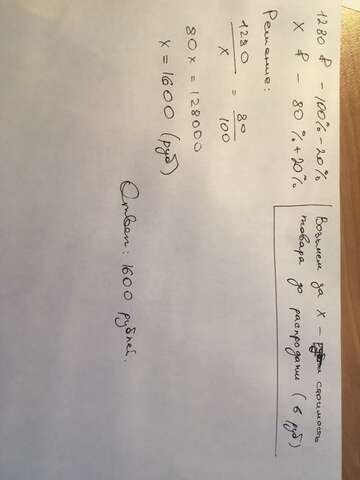 1280 ₽ - 100% - 20%
X ₽ - 80% + 20%
Возьмем за X - стоимость
товара до распродажи (в руб)
Решение:
1280/X = 80/100
80x = 128000
x = 1600 (руб)
Ответ: 1600 рублей.